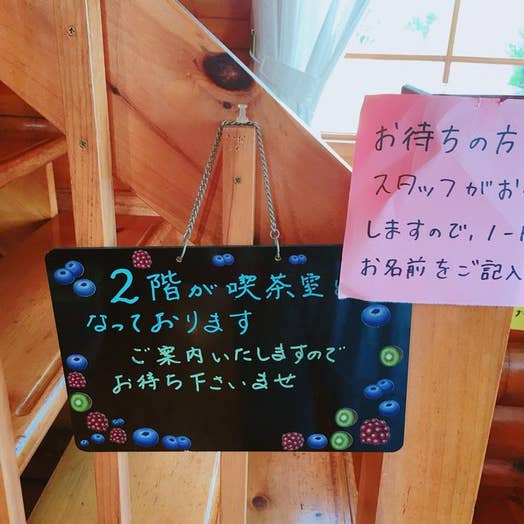 2階が喫茶室と
なっております
ご案内いたしますので
お待ち下さいませ
お待ちの方
スタッフがお
しますので、ノー
お名前をご記入